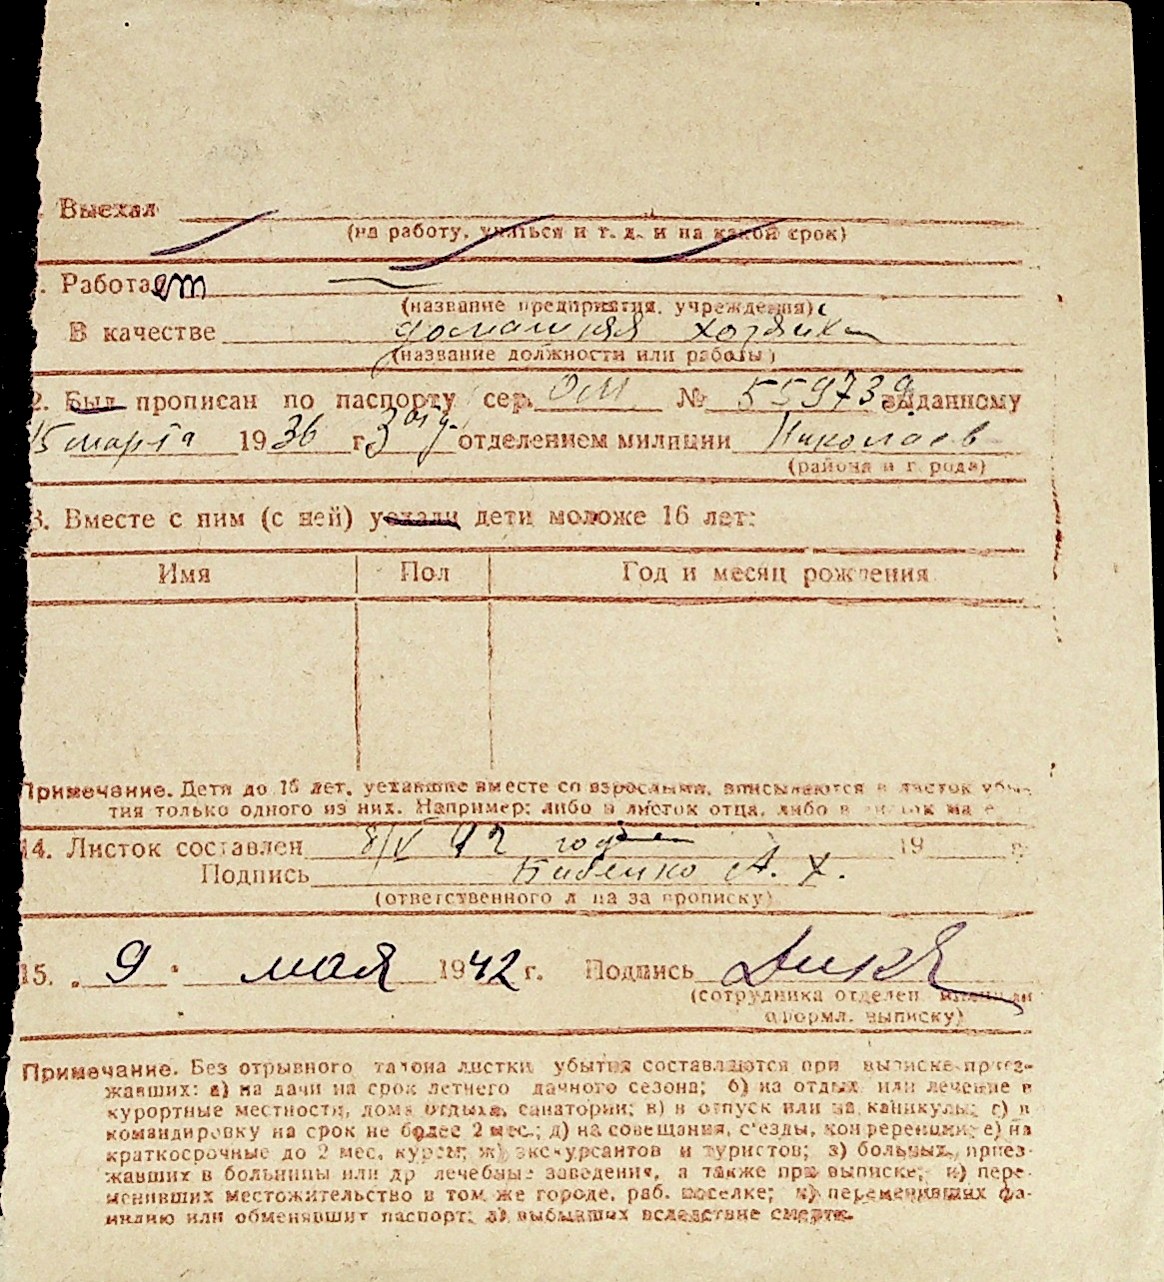 . Выехал
(на работу, учиться и т. д. и на какой срок)
. Работает
(название предприятия, учреждения)
В качестве домашняя хозяйка
(название должности или работы)
2. Был прописан по паспорту сер. ОМ № 559739 выданному
15 марта 1936 г. 3 отд. отделением милиции Николаев
(района и города)
3. Вместе с ним (с ней) уехали дети моложе 16 лет:
Имя Пол Год и месяц рождения
Примечание. Дети до 16 лет, уехавшие вместе со взрослыми, вписываются в листок убы-
тия только одного из них. Например: либо в листок отца, либо в листок ма
14. Листок составлен 8/V 42 года 19 г.
Подпись А. Х.
(ответственного лица за прописку)
15. 9 мая 1942 г. Подпись
(сотрудника отделен. милиции
оформл. выписку)
Примечание. Без отрывного талона листки убытия составляются при выписке приез-
жавших: а) на дачи на срок летнего дачного сезона; б) на отдых или лечение в
курортные местности, дома отдыха, санатории; в) в отпуск или на каникулы; г) в
командировку на срок не более 2 мес.; д) на совещания, с'езды, конференции; е) на
краткосрочные до 2 мес. курсы; ж) экскурсантов и туристов; з) больных, приез-
жавших в больницы или др лечебные заведения, а также при выписке; и) пере-
менивших местожительство в том же городе, раб. поселке; к) переменивших фа-
милию или обменявшит паспорт; л) выбывших вследствие смерти.